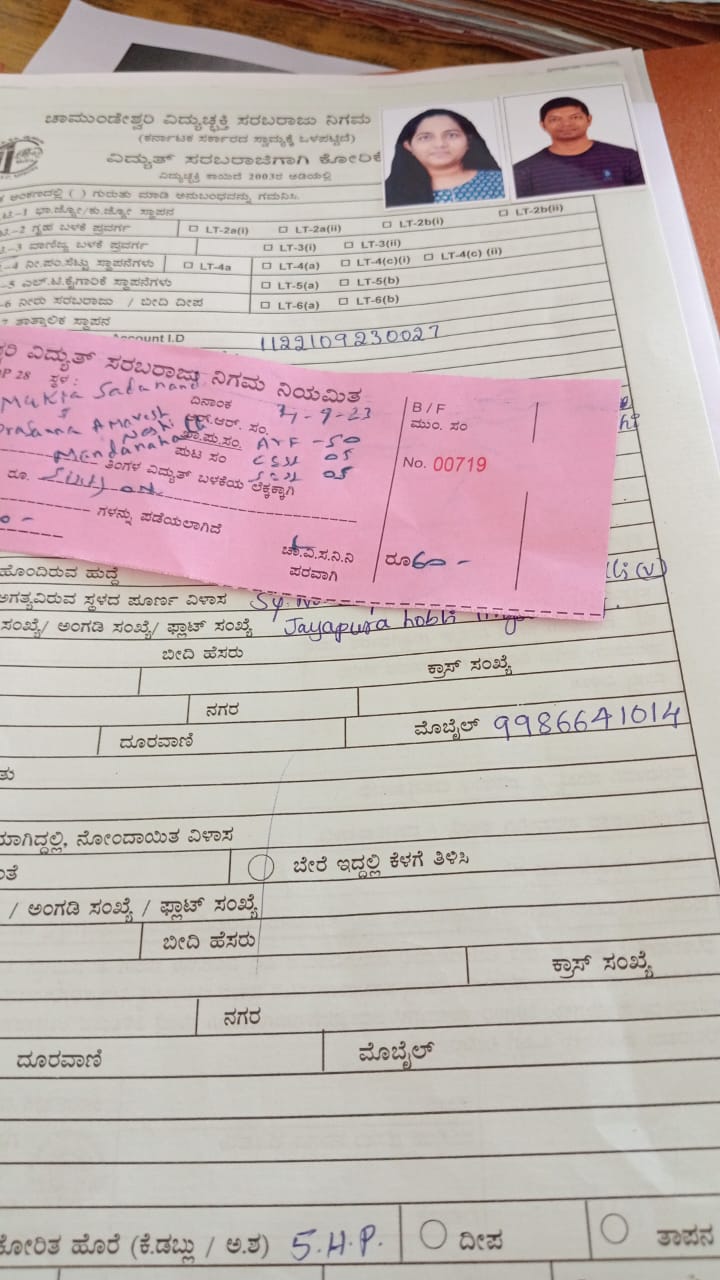 ಚಾಮುಂಡೇಶ್ವರಿ ವಿದ್ಯುಚ್ಛಕ್ತಿ ಸರಬರಾಜು ನಿಗಮ
(ಕರ್ನಾಟಕ ಸರ್ಕಾರದ ಸ್ವಾಮ್ಯಕ್ಕೆ ಒಳಪಟ್ಟಿದೆ)
ವಿದ್ಯುತ್ ಸರಬರಾಜಿಗಾಗಿ ಕೋರಿಕೆ
ವಿದ್ಯುಚ್ಛಕ್ತಿ ಕಾಯಿದೆ 2003ರ ಅಡಿಯಲ್ಲಿ
ಅಂಕಣದಲ್ಲಿ ( ) ಗುರುತು ಮಾಡಿ ಅನುಬಂಧವನ್ನು ಗಮನಿಸಿ
-1 ಭಾ.ಜ್ಯೋ/ಕು.ಜ್ಯೋ ಸ್ಥಾಪನ
-2 ಗೃಹ ಬಳಕೆ ಪ್ರವರ್ಗ □ LT-2a(i) □ LT-2a(ii) □ LT-2b(i) □ LT-2b(ii)
-3 ವಾಣಿಜ್ಯ ಬಳಕೆ ಪ್ರವರ್ಗ □ LT-3(i) □ LT-3(ii)
-4 ನೀ.ಪಂ.ಸೆಟ್ಟು ಸ್ಥಾಪನೆಗಳು □ LT-4a □ LT-4(a) □ LT-4(c)(i) □ LT-4(c) (ii)
-5 ಎಲ್.ಟಿ.ಕೈಗಾರಿಕೆ ಸ್ಥಾಪನೆಗಳು □ LT-5(a) □ LT-5(b)
-6 ನೀರು ಸರಬರಾಜು / ಬೀದಿ ದೀಪ □ LT-6(a) □ LT-6(b)
7 ತಾತ್ಕಾಲಿಕ ಸ್ಥಾಪನ
Account I.D 1122109230027
ವಿದ್ಯುತ್ ಸರಬರಾಜು ನಿಗಮ ನಿಯಮಿತ
P 28 ಸ್ಥಳ :
Mukta Sadanand
ದಿನಾಂಕ
-9-23
B / F
ಮುಂ. ಸಂ
Prasanna Amaresh
ಆರ್.ಆರ್. ಸಂ.
Mandanahalli
ಪುಟ ಸಂ
No. 00719
ತಿಂಗಳ ವಿದ್ಯುತ್ ಬಳಕೆಯ ಲೆಕ್ಕಕ್ಕಾಗಿ
ರೂ.
ಗಳನ್ನು ಪಡೆಯಲಾಗಿದೆ
ಚಾ.ವಿ.ಸ.ನಿ.ನಿ ರೂ 60 -
ಪರವಾಗಿ
ಹೊಂದಿರುವ ಹುದ್ದೆ
ಅಗತ್ಯವಿರುವ ಸ್ಥಳದ ಪೂರ್ಣ ವಿಳಾಸ Sy. No
ಸಂಖ್ಯೆ/ ಅಂಗಡಿ ಸಂಖ್ಯೆ/ ಫ್ಲಾಟ್ ಸಂಖ್ಯೆ Jayapura hobli
ಬೀದಿ ಹೆಸರು
ಕ್ರಾಸ್ ಸಂಖ್ಯೆ
ನಗರ
ದೂರವಾಣಿ ಮೊಬೈಲ್ 9986641014
ಯಾಗಿದ್ದಲ್ಲಿ, ನೋಂದಾಯಿತ ವಿಳಾಸ
ಬೇರೆ ಇದ್ದಲ್ಲಿ ಕೆಳಗೆ ತಿಳಿಸಿ
/ ಅಂಗಡಿ ಸಂಖ್ಯೆ / ಫ್ಲಾಟ್ ಸಂಖ್ಯೆ
ಬೀದಿ ಹೆಸರು
ಕ್ರಾಸ್ ಸಂಖ್ಯೆ
ನಗರ
ದೂರವಾಣಿ ಮೊಬೈಲ್
ಕೋರಿತ ಹೊರೆ (ಕೆ.ಡಬ್ಲು / ಅ.ಶ) 5.H.P. ದೀಪ ತಾಪನ